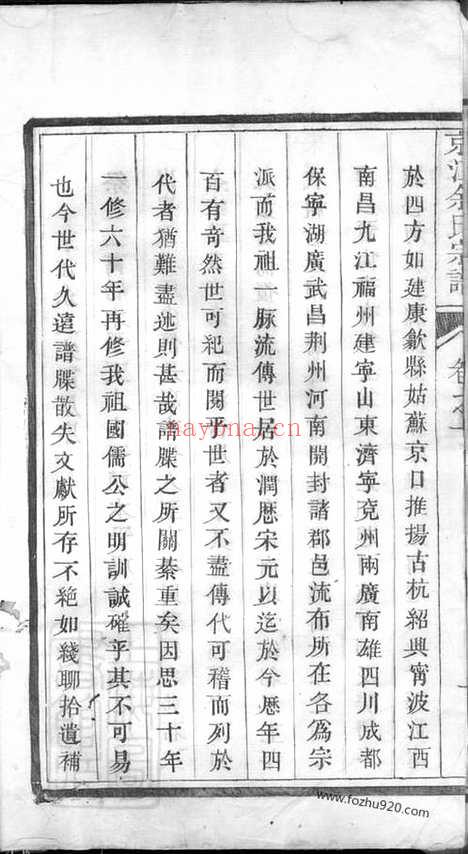 京江余氏宗譜
卷之一
於四方如建康歙縣姑蘇京口推揚古杭紹興甯波江西
南昌九江福州建寧山東濟寧兗州兩廣南雄四川成都
保寧湖廣武昌荆州河南開封諸郡邑流布所在各為宗
派而我祖一脈流傳世居於潤歷宋元以迄於今歷年四
百有奇然世可紀而閱乎世者又不盡傳代可稽而列於
代者猶難盡述則甚哉譜牒之所關綦重矣因思三十年
一修六十年再修我祖國儒公之明訓誠確乎其不可易
也今世代久遠譜牒散失文獻所存不絶如綫聊拾遺補
hayona.cn
www.fozhu920.com